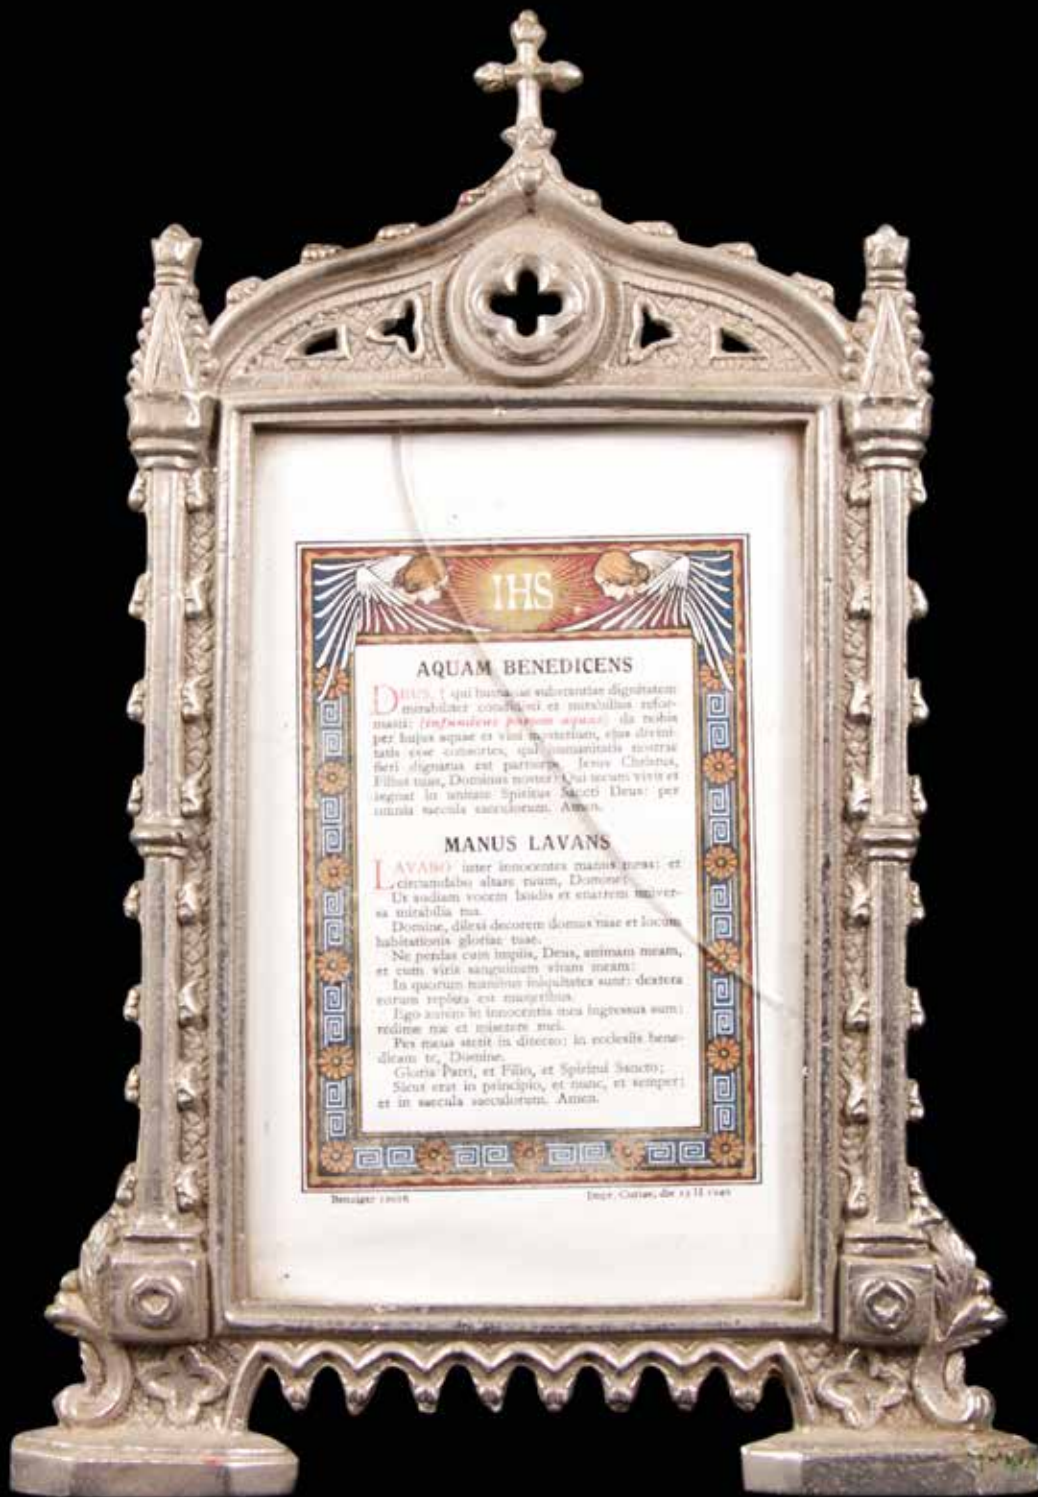 IHS
AQUAM BENEDICENS
DEUS, † qui humanae substantiae dignitatem
mirabiliter condidisti et mirabilius refor-
masti: (infundens parum aquae) da nobis
per hujus aquae et vini mysterium, ejus divini-
tatis esse consortes, qui humanitatis nostrae
fieri dignatus est particeps, Jesus Christus,
Filius tuus, Dominus noster: Qui tecum vivit et
regnat in unitate Spiritus Sancti Deus: per
omnia saecula saeculorum. Amen.
MANUS LAVANS
LAVABO inter innocentes manus meas: et
circumdabo altare tuum, Domine:
Ut audiam vocem laudis et enarrem univer-
sa mirabilia tua.
Domine, dilexi decorem domus tuae et locum
habitationis gloriae tuae.
Ne perdas cum impiis, Deus, animam meam,
et cum viris sanguinum vitam meam:
In quorum manibus iniquitates sunt: dextera
eorum repleta est muneribus.
Ego autem in innocentia mea ingressus sum:
redime me et miserere mei.
Pes meus stetit in directo: in ecclesiis bene-
dicam te, Domine.
Gloria Patri, et Filio, et Spiritui Sancto;
Sicut erat in principio, et nunc, et semper:
et in saecula saeculorum. Amen.
Benziger
Impr. Curiae, die